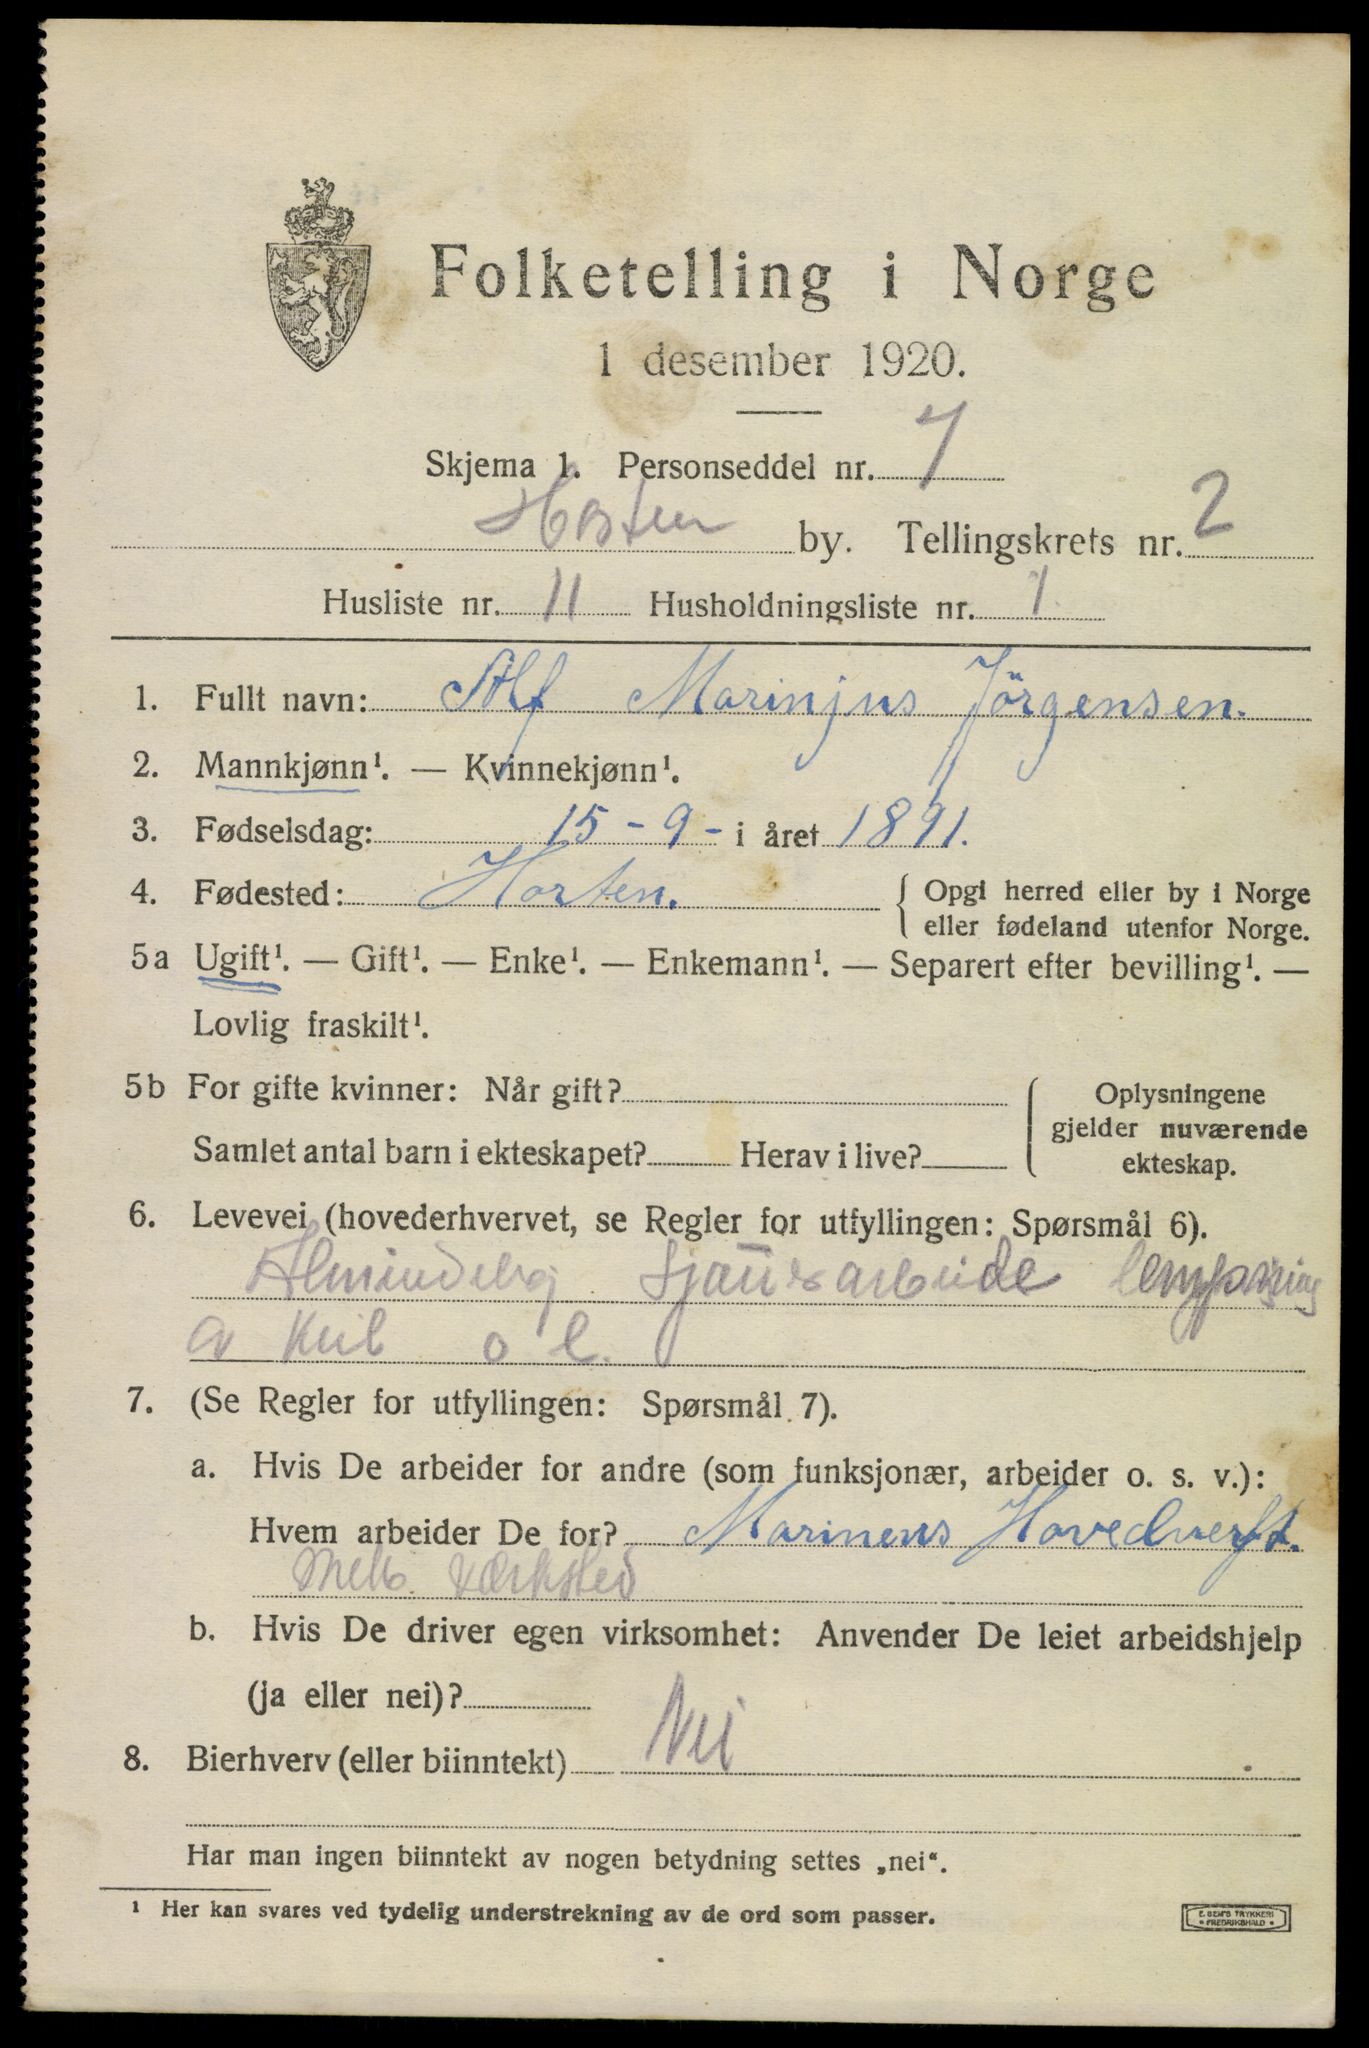 Folketelling i Norge
1 desember 1920.
Skjema 1. Personseddel nr. 7
Horten by. Tellingskrets nr. 2
Husliste nr. 11 Husholdningsliste nr. 1.
1. Fullt navn: Alf Marinjus Jörgensen.
2. Mannkjønn¹. — Kvinnekjønn¹.
3. Fødselsdag: 15 - 9 - i året 1891.
4. Fødested: Horten. { Opgi herred eller by i Norge
eller fødeland utenfor Norge.
5a Ugift¹. — Gift¹. — Enke¹. — Enkemann¹. — Separert efter bevilling¹. —
Lovlig fraskilt¹.
5b For gifte kvinner: Når gift? { Oplysningene
gjelder nuværende
Samlet antal barn i ekteskapet? Herav i live?
ekteskap.
6. Levevei (hovederhvervet, se Regler for utfyllingen: Spørsmål 6).
Almindelig Sjauerarbeide
a Kul o l.
7. (Se Regler for utfyllingen: Spørsmål 7).
a. Hvis De arbeider for andre (som funksjonær, arbeider o. s. v.):
Hvem arbeider De for? Marinens Hovedverft.
Mek. Værksted
b. Hvis De driver egen virksomhet: Anvender De leiet arbeidshjelp
(ja eller nei)?
8. Bierhverv (eller biinntekt) Nei
Har man ingen biinntekt av nogen betydning settes „nei“.
¹ Her kan svares ved tydelig understrekning av de ord som passer.
E. SEM'S TRYKKERI
• FREDRIKSHALD •